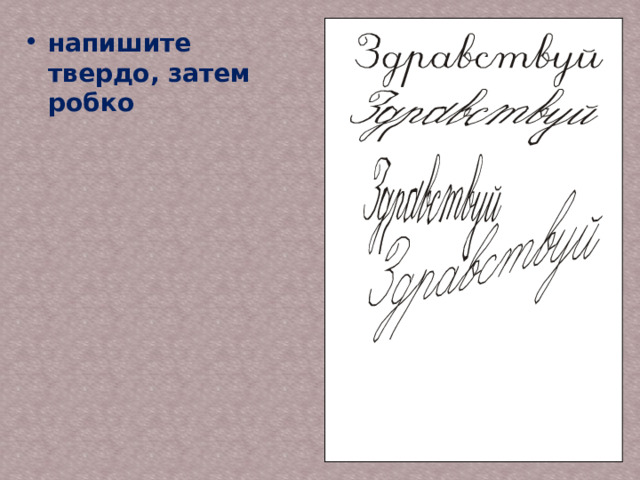 напишите
твердо, затем
робко
Здравствуй
Здравствуй
Здравствуй
Здравствуй